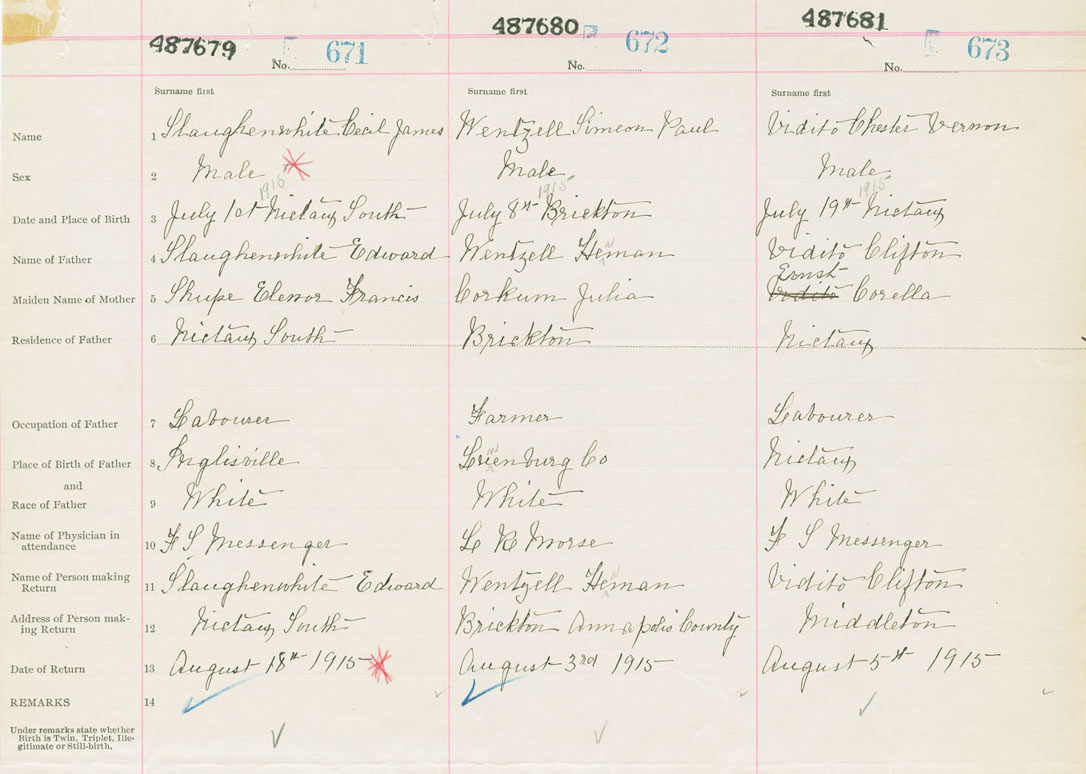 487679 487680 487681
671 672 673
No. No. No.
Surname first Surname first Surname first
Name 1 Slaughenwhite Cecil James Wentzell Simeon Paul Vidito Chester Vernon
Sex 2 Male Male Male
1915 1915 1915
Date and Place of Birth 3 July 1st Nictaux South July 8th Brickton July 19th Nictaux
Name of Father 4 Slaughenwhite Edward Wentzell Heman Vidito Clifton
Ernst
Maiden Name of Mother 5 Shupe Elenor Francis Corkum Julia Vidito Corella
Residence of Father 6 Nictaux South Brickton Nictaux
Occupation of Father 7 Labourer Farmer Labourer
Place of Birth of Father 8 Inglisville Lunenburg Co Nictaux
and
Race of Father 9 White White White
Name of Physician in
attendance 10 F S Messenger L R Morse F S Messenger
Name of Person making
Return 11 Slaughenwhite Edward Wentzell Heman Vidito Clifton
Address of Person mak-
ing Return 12 Nictaux South Brickton Annapolis County Middleton
Date of Return 13 August 18th 1915 August 3rd 1915 August 5th 1915
REMARKS 14
Under remarks state whether
Birth is Twin, Triplet, Ille-
gitimate or Still-birth.